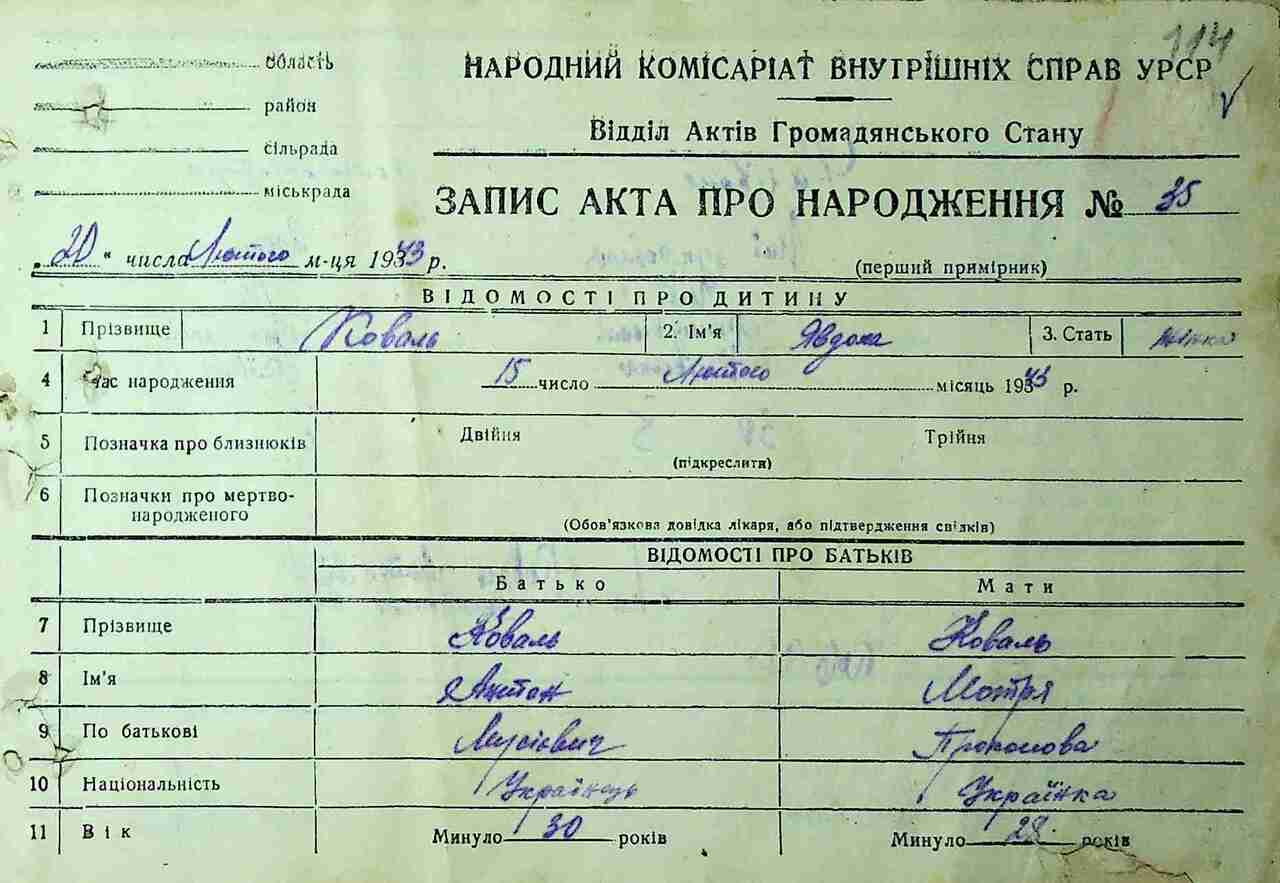 114
область
район
сільрада
міськрада
НАРОДНИЙ КОМІСАРІАТ ВНУТРІШНІХ СПРАВ УРСР
Відділ Актів Громадянського Стану
ЗАПИС АКТА ПРО НАРОДЖЕННЯ № 35
„20" числа Лютого м-ця 1943 р.
(перший примірник)
ВІДОМОСТІ ПРО ДИТИНУ
1 Прізвище Коваль 2. Ім'я Явдоха 3. Стать жінка
4 Час народження 15 число Лютого місяць 1943 р.
5 Позначка про близнюків Двійня Трійня
(підкреслити)
6 Позначки про мертво-
народженого
(Обов'язкова довідка лікаря, або підтвердження свідків)
ВІДОМОСТІ ПРО БАТЬКІВ
Батько Мати
7 Прізвище Коваль Коваль
8 Ім'я Антон Мотря
9 По батькові Мусієвич Прокопова
10 Національність Українець Українка
11 Вік Минуло 30 років Минуло 28 років